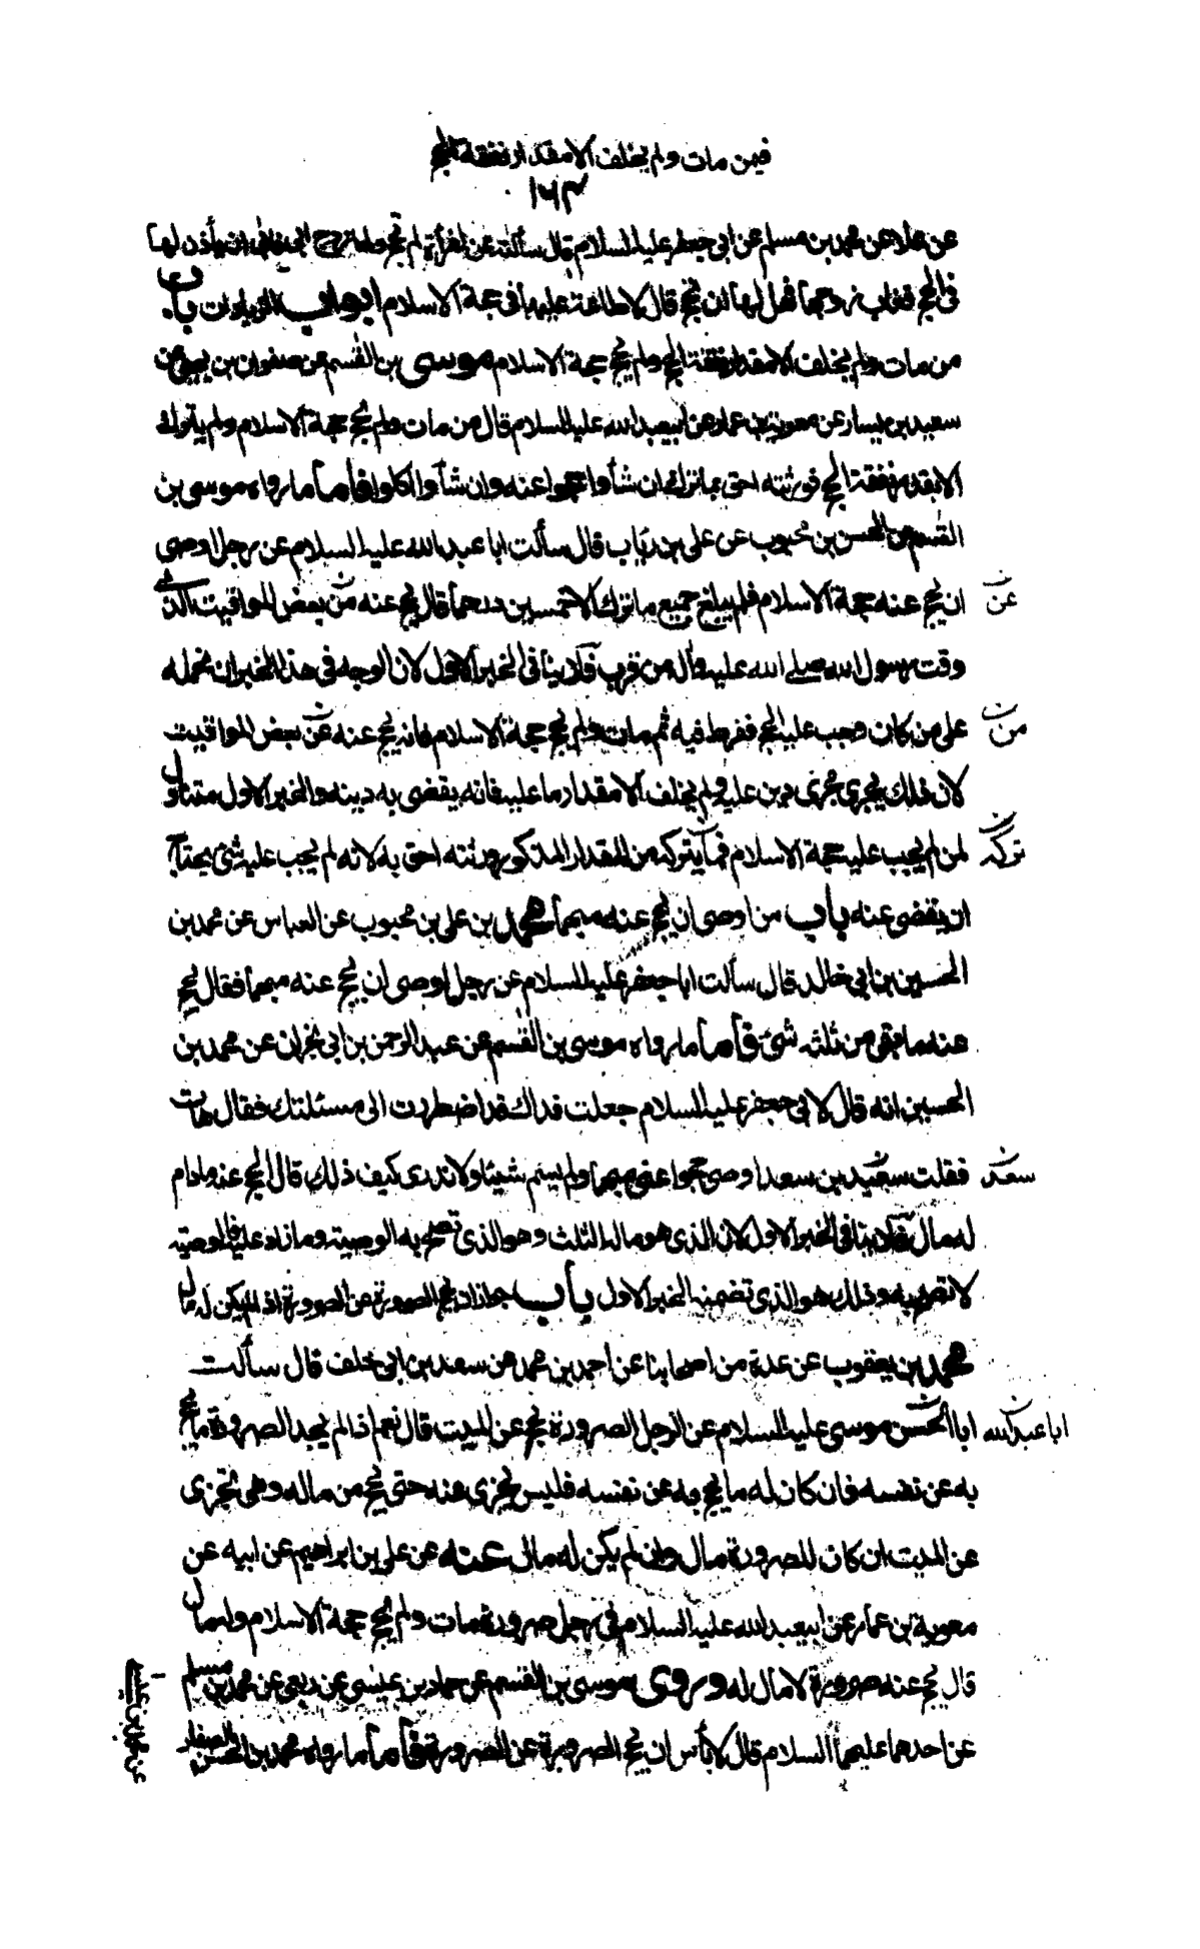 فيمن مات ولم يخلف الا مقدار نفقة الحج
١٦٣
عن علا عن محمد بن مسلم عن ابي جعفر عليه السلام قال سألته عن امرأة لم تحج ولها زوج ابى ان يأذن لها
في الحج فغاب زوجها فهل لها ان تحج قال لا طاعة له عليها في حجة الاسلام ابواب الزيادات باب
من مات ولم يخلف الا مقدار نفقة الحج ولم يحج حجة الاسلام موسى بن القسم عن صفوان بن يحيى عن
سعيد بن يسار عن معوية بن عمار عن ابيعبد الله عليه السلام قال من مات ولم يحج حجة الاسلام ولم يترك
الا بقدر نفقة الحج فورثته احق بما ترك ان شأوا حجوا عنه وان شأوا اكلوا فأما ما رواه موسى بن
القسم عن الحسن بن محبوب عن على بن رياب قال سألت ابا عبد الله عليه السلام عن رجل اوصى
ان يحج عنه حجة الاسلام فلم يبلغ جميع ما ترك الا خمسين درهما قال يحج عنه من بعض المواقيت الذى
عن
وقت رسول الله صلى الله عليه وآله من قرب فلا ينافى الخبر الاول لان الوجه فى هذا الخبر ان نحمله
على من كان وجب عليه الحج ففرط فيه ثم مات ولم يحج حجة الاسلام فانه يحج عنه عن بعض المواقيت
من
لان ذلك يجرى مجرى دين عليه ولم يخلف الا مقدار ما عليه فانه يقضى به دينه والخبر الاول متناول
لمن لم يجب عليه حجة الاسلام فما يتركه من المقدار المذكور ورثته احق به لانه لم يجب عليه شئ يحتاج
تركه
ان يقضى عنه باب من اوصى ان يحج عنه مبهما محمد بن على بن محبوب عن العباس عن محمد بن
الحسين بن ابي خالد قال سألت ابا جعفر عليه السلام عن رجل اوصى ان يحج عنه مبهما فقال يحج
عنه ما بقى من ثلثه شئ فأما ما رواه موسى بن القسم عن عبد الرحمن بن ابى نجران عن محمد بن
الحسين انه قال لابى جعفر عليه السلام جعلت فداك قد اضطررت الى مسئلتك فقال هات
فقلت سعيد بن سعد اوصى حجوا عنى مبهما ولم يسم شيئا ولا ندرى كيف ذلك قال يحج عنه ما دام
سعد
له مال فلا ينافى الخبر الاول لان الذى هو ماله الثلث وهو الذى تصح به الوصية وما زاد عليه فالوصية
لا تصح به وذلك هو الذى تضمنه الخبر الاول باب جواز ان يحج الصرورة عن الصرورة اذا لم يكن له مال
محمد بن يعقوب عن عدة من اصحابنا عن احمد بن محمد عن سعد بن ابى خلف قال سألت
ابا الحسن موسى عليه السلام عن الرجل الصرورة يحج عن الميت قال نعم اذا لم يجد الصرورة ما يحج
ابا عبد الله
به عن نفسه فان كان له ما يحج به عن نفسه فليس يجزى عنه حتى يحج من ماله وهى تجزى
عن الميت ان كان للصرورة مال وان لم يكن له مال عنه عن على بن ابراهيم عن ابيه عن
معوية بن عمار عن ابيعبد الله عليه السلام فى رجل صرورة مات ولم يحج حجة الاسلام وله مال
قال يحج عنه صرورة لا مال له وروى موسى بن القسم عن حماد بن عيسى عن ربعى عن محمد بن مسلم
عن احدهما عليهما السلام قال لا بأس ان يحج الصرورة عن الصرورة فأما ما رواه محمد بن الحسن الصفار